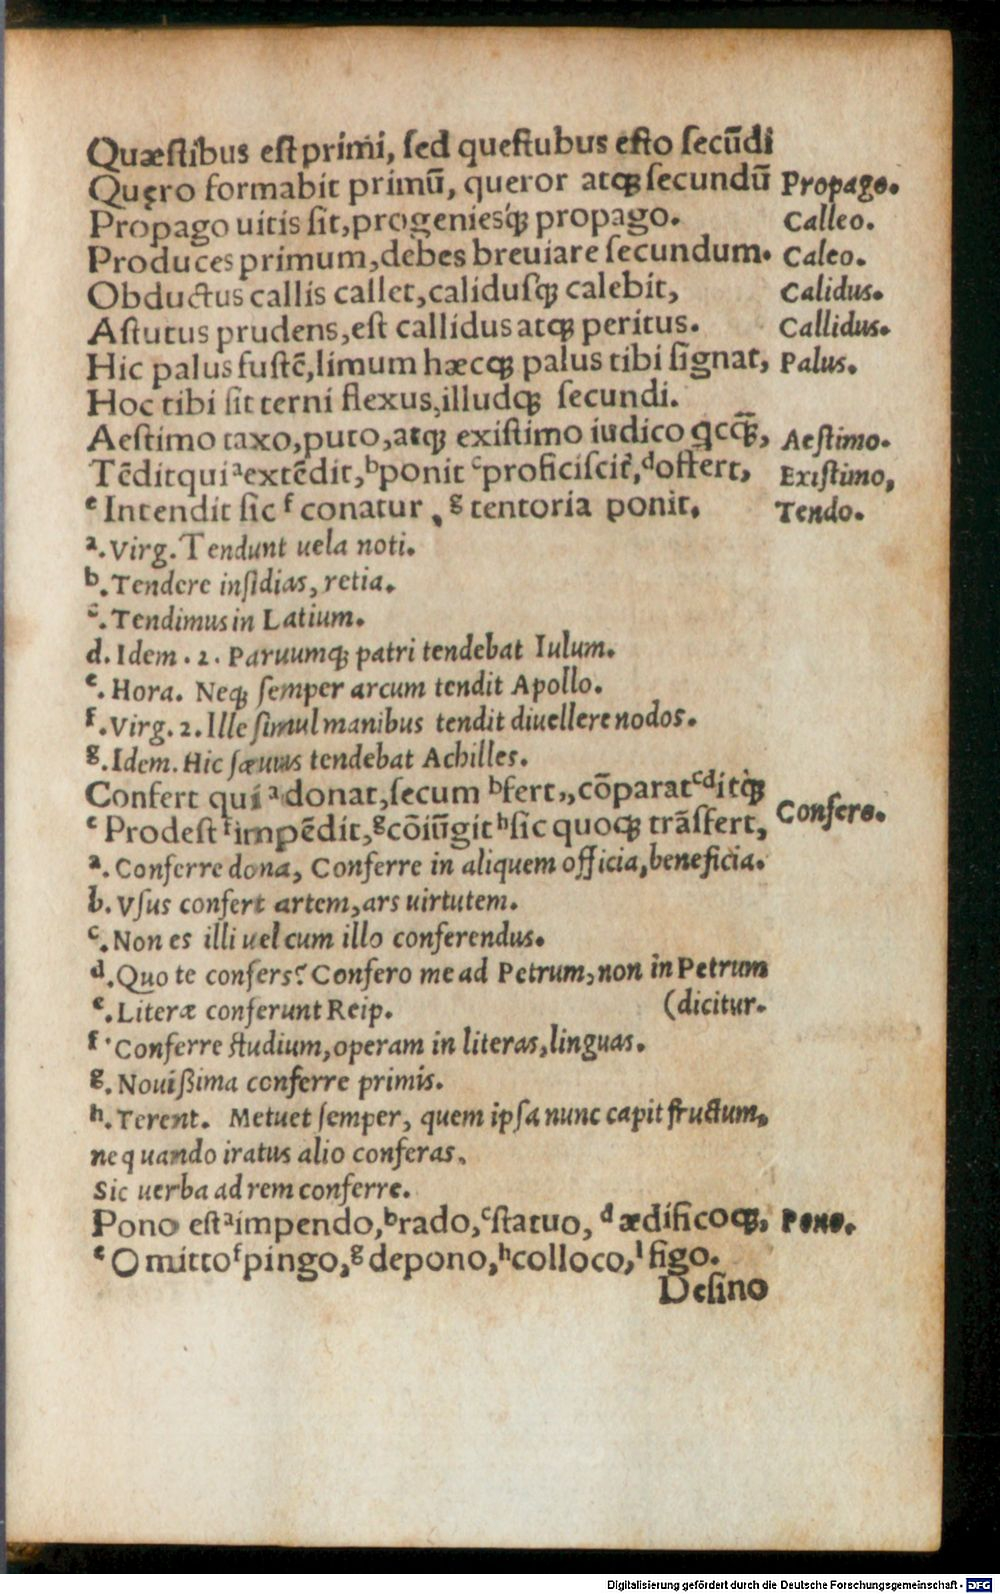 Quæſtibus eſt primi, ſed queſtubus eſto ſecūdi
Quęro formabit primū, queror atqꝫ ſecundū Propago.
Propago uitis ſit, progeniesq́ꝫ propago. Calleo.
Produces primum, debes breuiare ſecundum. Caleo.
Obductus callis callet, calidusqꝫ calebit, Calidus.
Aſtutus prudens, eſt callidus atqꝫ peritus. Callidus.
Hic palus fuſtē, limum hæcqꝫ palus tibi ſignat, Palus.
Hoc tibi ſit terni flexus, illudqꝫ ſecundi.
Aeſtimo taxo, puto, atqꝫ exiſtimo iudico Aeſtimo.
Tēdit qui ᵃextēdit, ᵇponit ᶜproficiſcit᷑, ᵈoffert, Exiſtimo,
ᵉIntendit ſic ᶠconatur, ᵍtentoria ponit. Tendo.
ᵃ. Virg. Tendunt uela noti.
ᵇ. Tendere inſidias, retia.
ᶜ. Tendimus in Latium.
d. Idem. 2. Paruumqꝫ patri tendebat Iulum.
ᵉ. Hora. Neqꝫ ſemper arcum tendit Apollo.
ᶠ. Virg. 2. Ille ſimul manibus tendit diuellere nodos.
ᵍ. Idem. Hic ſæuus tendebat Achilles.
Confert qui ᵃdonat, ſecum ᵇfert, cōparat ᶜᵈitq́ꝫ
ᵉProdeſt ᶠimpēdit, ᵍcōiūgit ʰſic quoqꝫ trāſfert, Confero.
ᵃ. Conferre dona, Conferre in aliquem officia, beneficia.
b. Vſus confert artem, ars uirtutem.
ᶜ. Non es illi uel cum illo conferendus.
ᵈ. Quo te confers? Confero me ad Petrum, non in Petrum
ᵉ. Literæ conferunt Reip. (dicitur.
ᶠ. Conferre ſtudium, operam in literas, linguas.
ᵍ. Nouißima conferre primis.
ʰ. Terent. Metuet ſemper, quem ipſa nunc capit fructum,
ne quando iratus alio conferas.
Sic uerba ad rem conferre.
Pono eſt ᵃimpendo, ᵇrado, ᶜſtatuo, ᵈædificoqꝫ, Pono.
ᵉOmitto ᶠpingo, ᵍdepono, ʰcolloco, ˡfigo.
Deſino
Digitalisierung gefördert durch die Deutsche Forschungsgemeinschaft - DFG